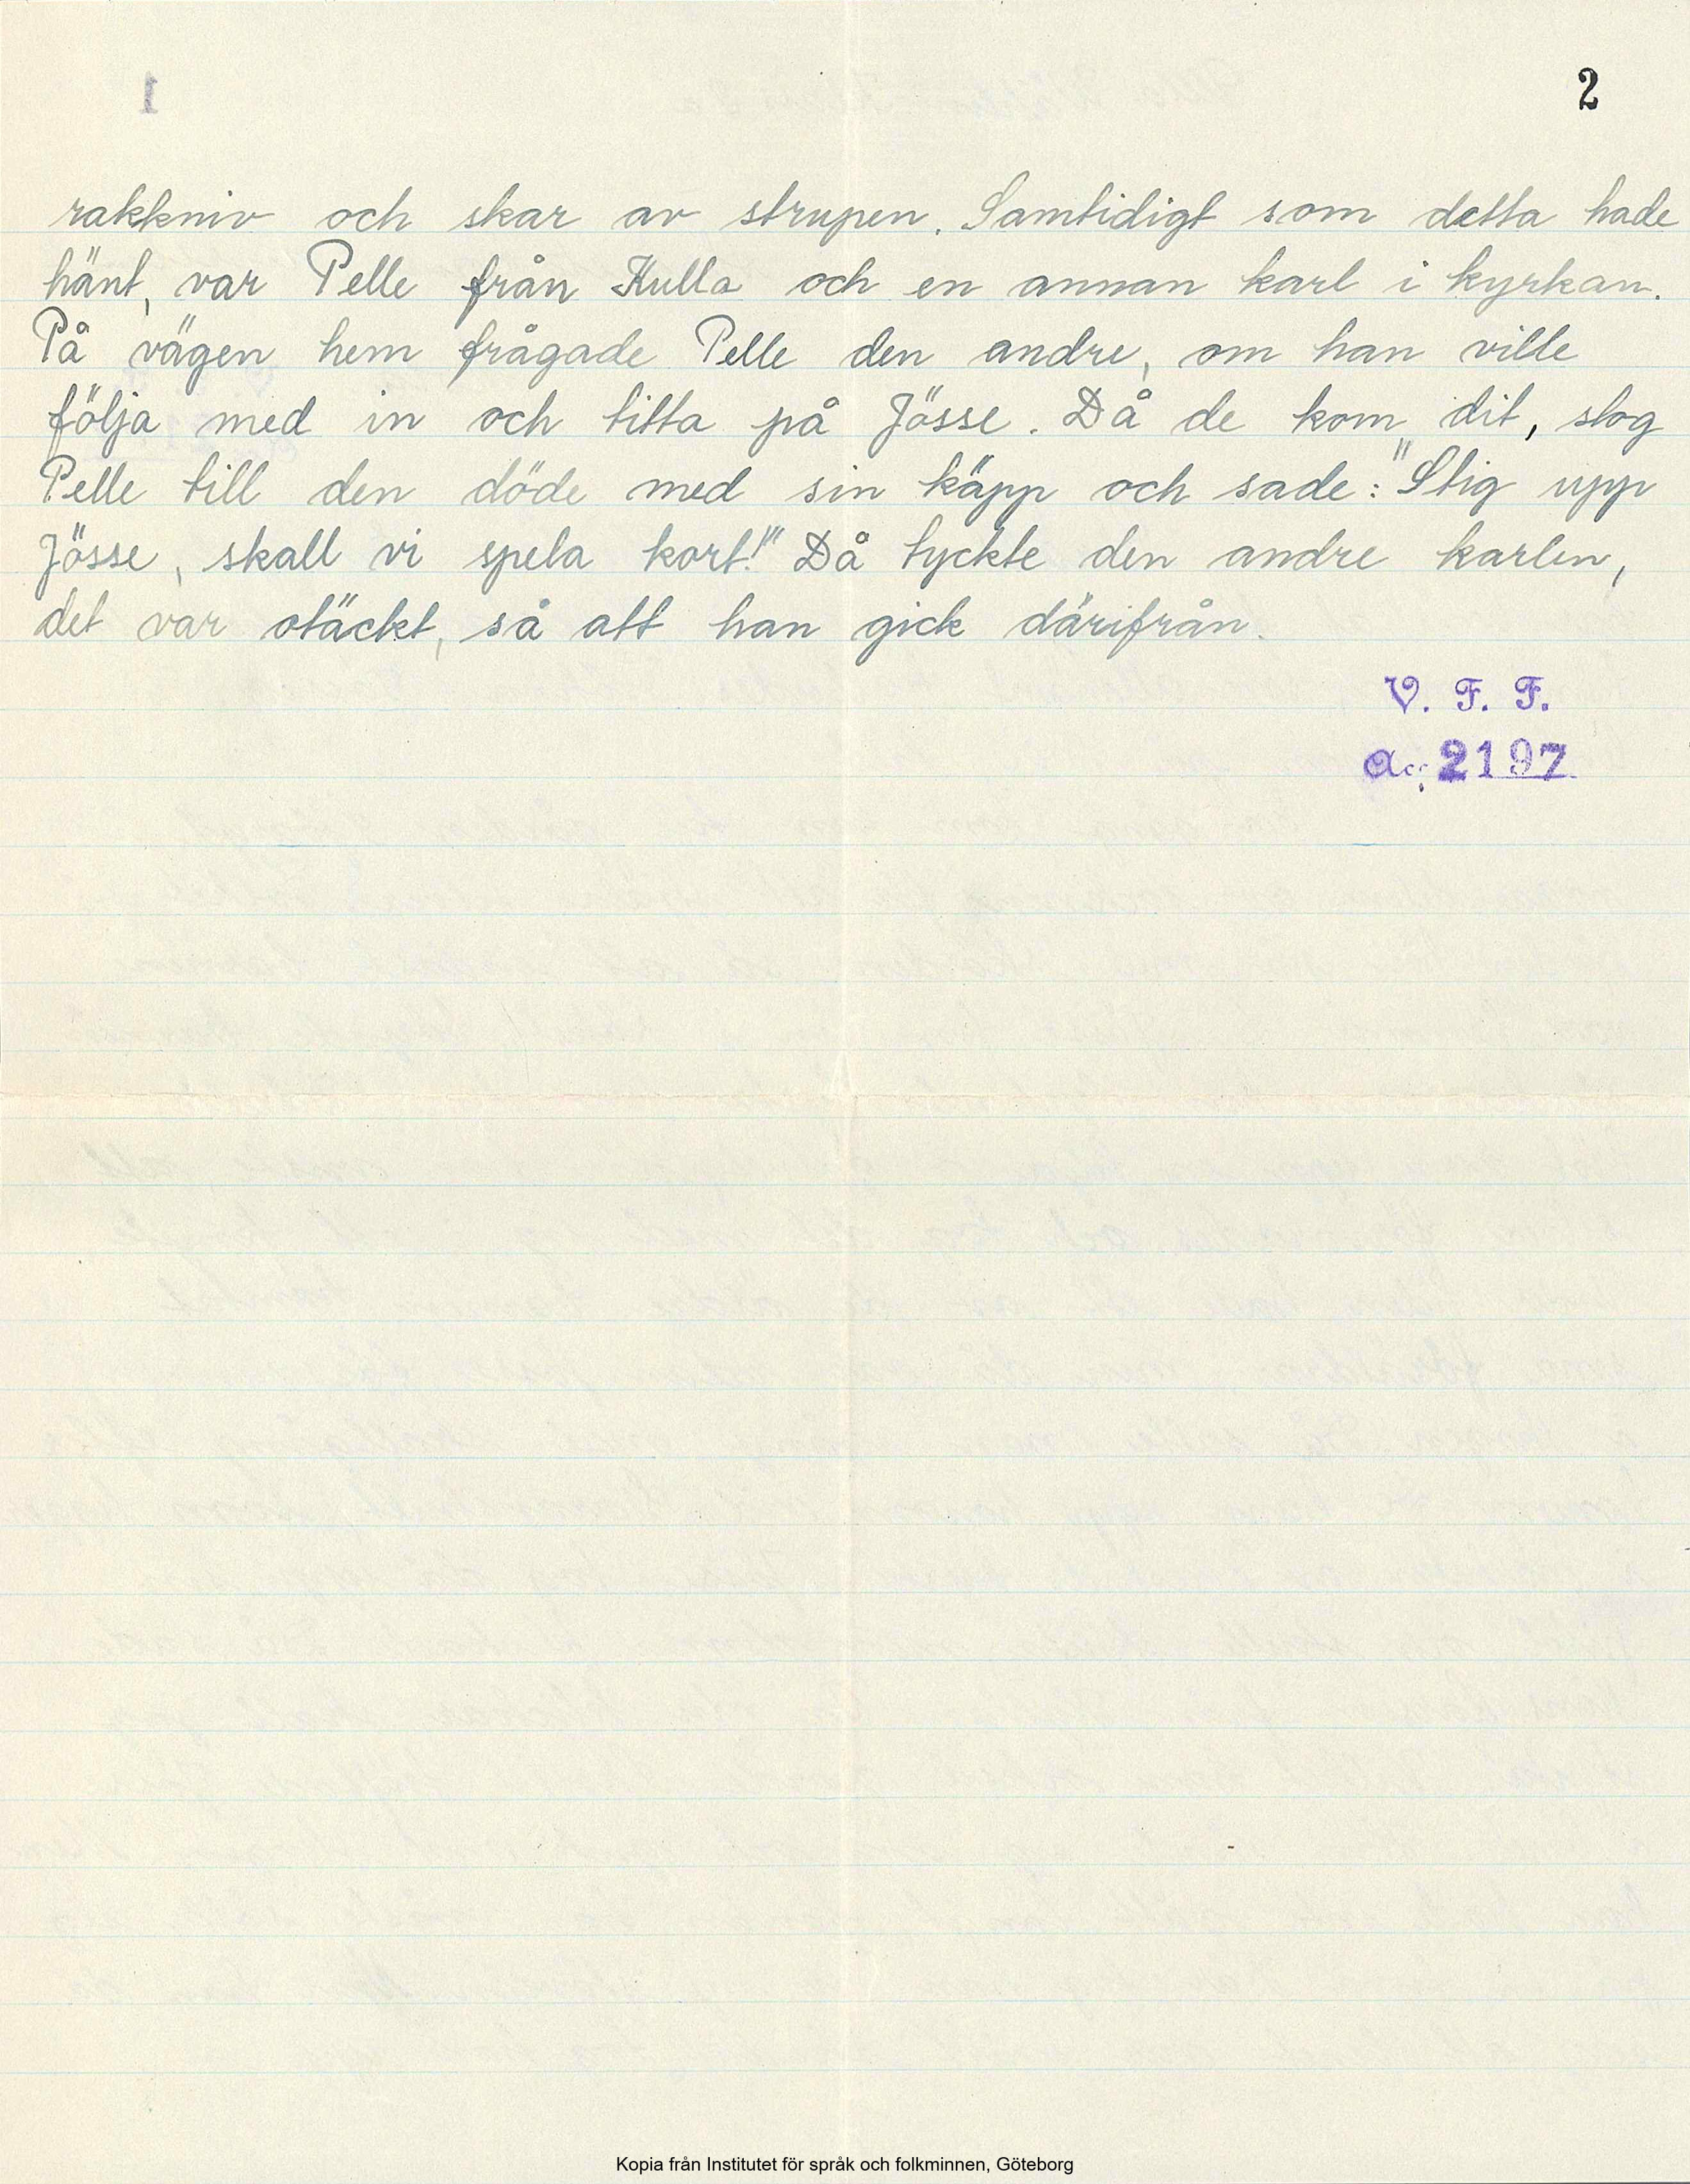 2
rakkniv och skar av strupen. Samtidigt som detta hade
hänt, var Pelle från Kulla och en annan karl i kyrkan.
På vägen hem frågade Pelle den andre, om han ville
följa med in och titta på Jösse. Då de kom dit, slog
Pelle till den döde med sin käpp och sade: "Stig upp
Jösse, skall vi spela kort!" Då tyckte den andre karlen,
det var otäckt, så att han gick därifrån.
V. F. F.
Acc. 2197
Kopia från Institutet för språk och folkminnen, Göteborg